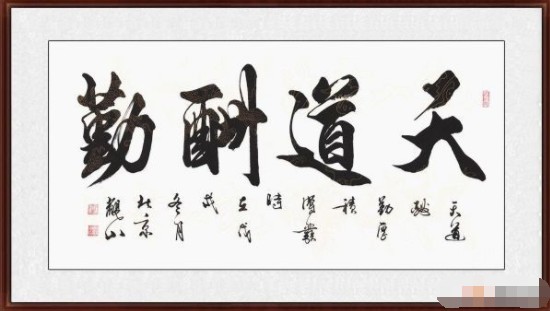 天道酬勤
天道
酬
勤厚
積
薄發
時
在戊
戌
冬月
北京
山